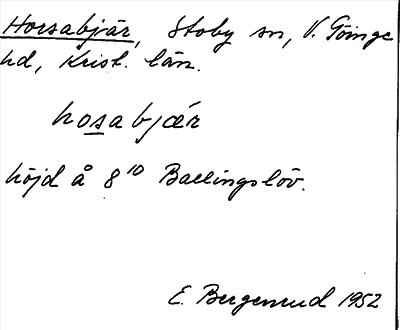 Horsabjär, Stoby sn, V. Göinge
hd, Krist. län.
hosabjær
höjd å 8¹⁰ Ballingslöv.
E. Bergenrud 1952